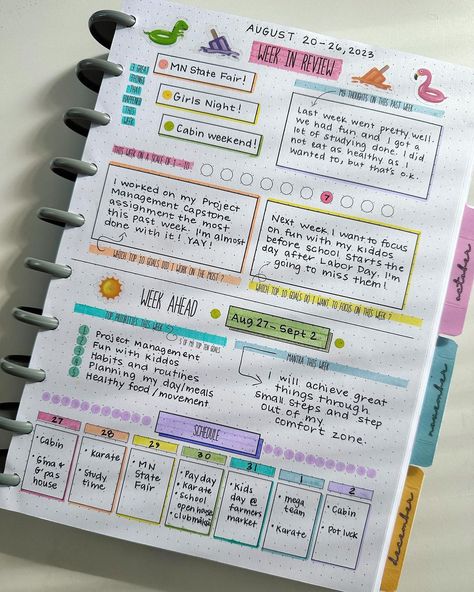 AUGUST 20-26, 2023
WEEK IN REVIEW
3 GREAT
THINGS
THAT
HAPPENED
THIS
WEEK
MN State Fair!
Girls Night!
Cabin weekend!
MY THOUGHTS ON THIS PAST WEEK
Last week went pretty well.
We had fun and I got a
lot of studying done. I did
not eat as healthy as I
wanted to, but that's o.k.
THIS WEEK ON A SCALE OF 1 - 10
7
I worked on my Project
Management Capstone
assignment the most
this past week. I'm almost
done with it! YAY!
WHICH TOP 10 GOALS DID I WORK ON THE MOST?
Next week I want to focus
on fun with my kiddos
before school starts the
day after Labor Day. I'm
going to miss them!
WHICH TOP 10 GOALS DO I WANT TO FOCUS ON THIS WEEK?
WEEK AHEAD
Aug 27-Sept 2
TOP PRIORITIES THIS WEEK
5 OF MY TOP TEN GOALS
Project Management
Fun with kiddos
Habits and routines
Planning my day/meals
Healthy food/movement
MANTRA THIS WEEK
I will achieve great
things through
small steps and step
out of my
comfort zone.
SCHEDULE
27
• Cabin
• Gma &
G'pas
house
28
• Karate
• Study
time
29
• MN
State
Fair
30
• Payday
• Karate
• School
open house
31
• Kids
day @
farmers
market
1
• mega
team
• Karate
2
• Cabin
• Potluck
october
november
december